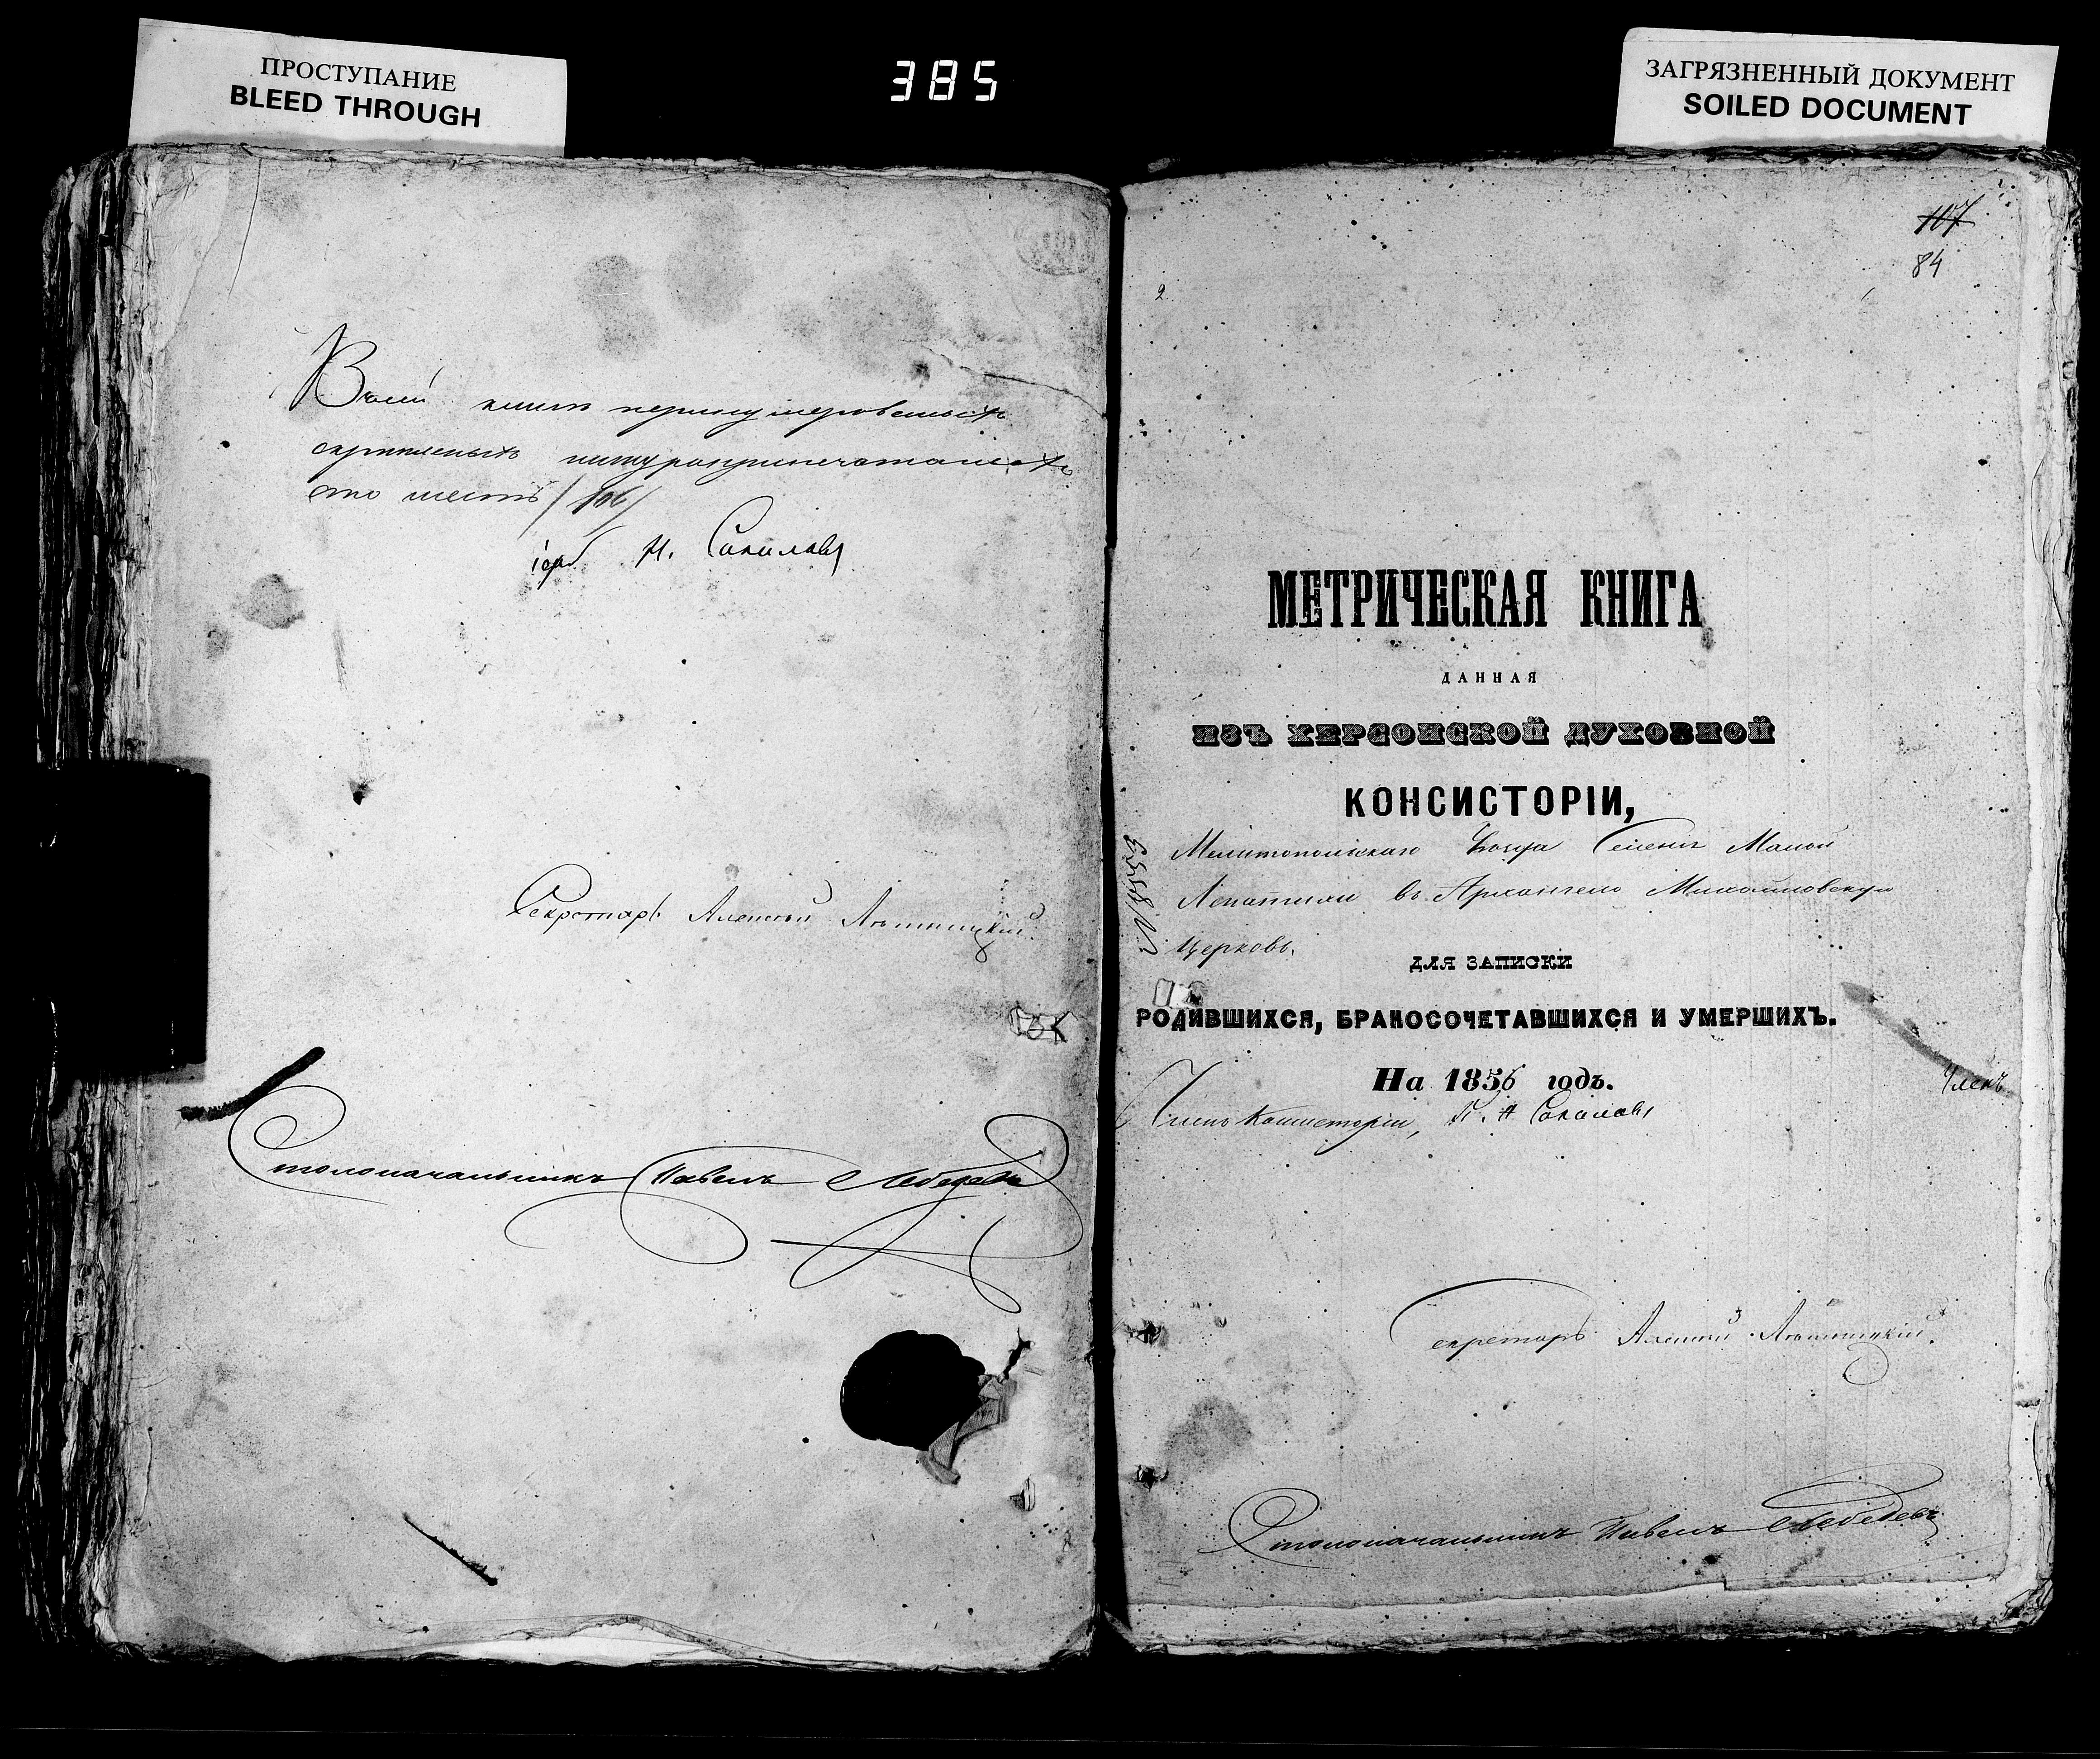 ПРОСТУПАНИЕ
BLEED THROUGH
385
ЗАГРЯЗНЕННЫЙ ДОКУМЕНТ
SOILED DOCUMENT
Въ сей книгѣ перенумерованныхъ
скрѣпленныхъ и шнуроприпечатанныхъ
сто шесть /106/
І. Н. Соколовъ
Секретарь Алексѣй
Столоначальникъ Павелъ Лебедевъ
107
84
2
МЕТРИЧЕСКАЯ КНИГА
ДАННАЯ
ИЗЪ ХЕРСОНСКОЙ ДУХОВНОЙ
КОНСИСТОРІИ,
Мелитопольскаго Уѣзда Селенія Малой
Лепатихи въ Архангело Михайловскую
Церковь.
ДЛЯ ЗАПИСКИ
РОДИВШИХСЯ, БРАКОСОЧЕТАВШИХСЯ И УМЕРШИХЪ.
На 1856 годъ.
Членъ
Членъ Консисторіи, Соколовъ
Секретарь Алексѣй
Столоначальникъ Павелъ Лебедевъ